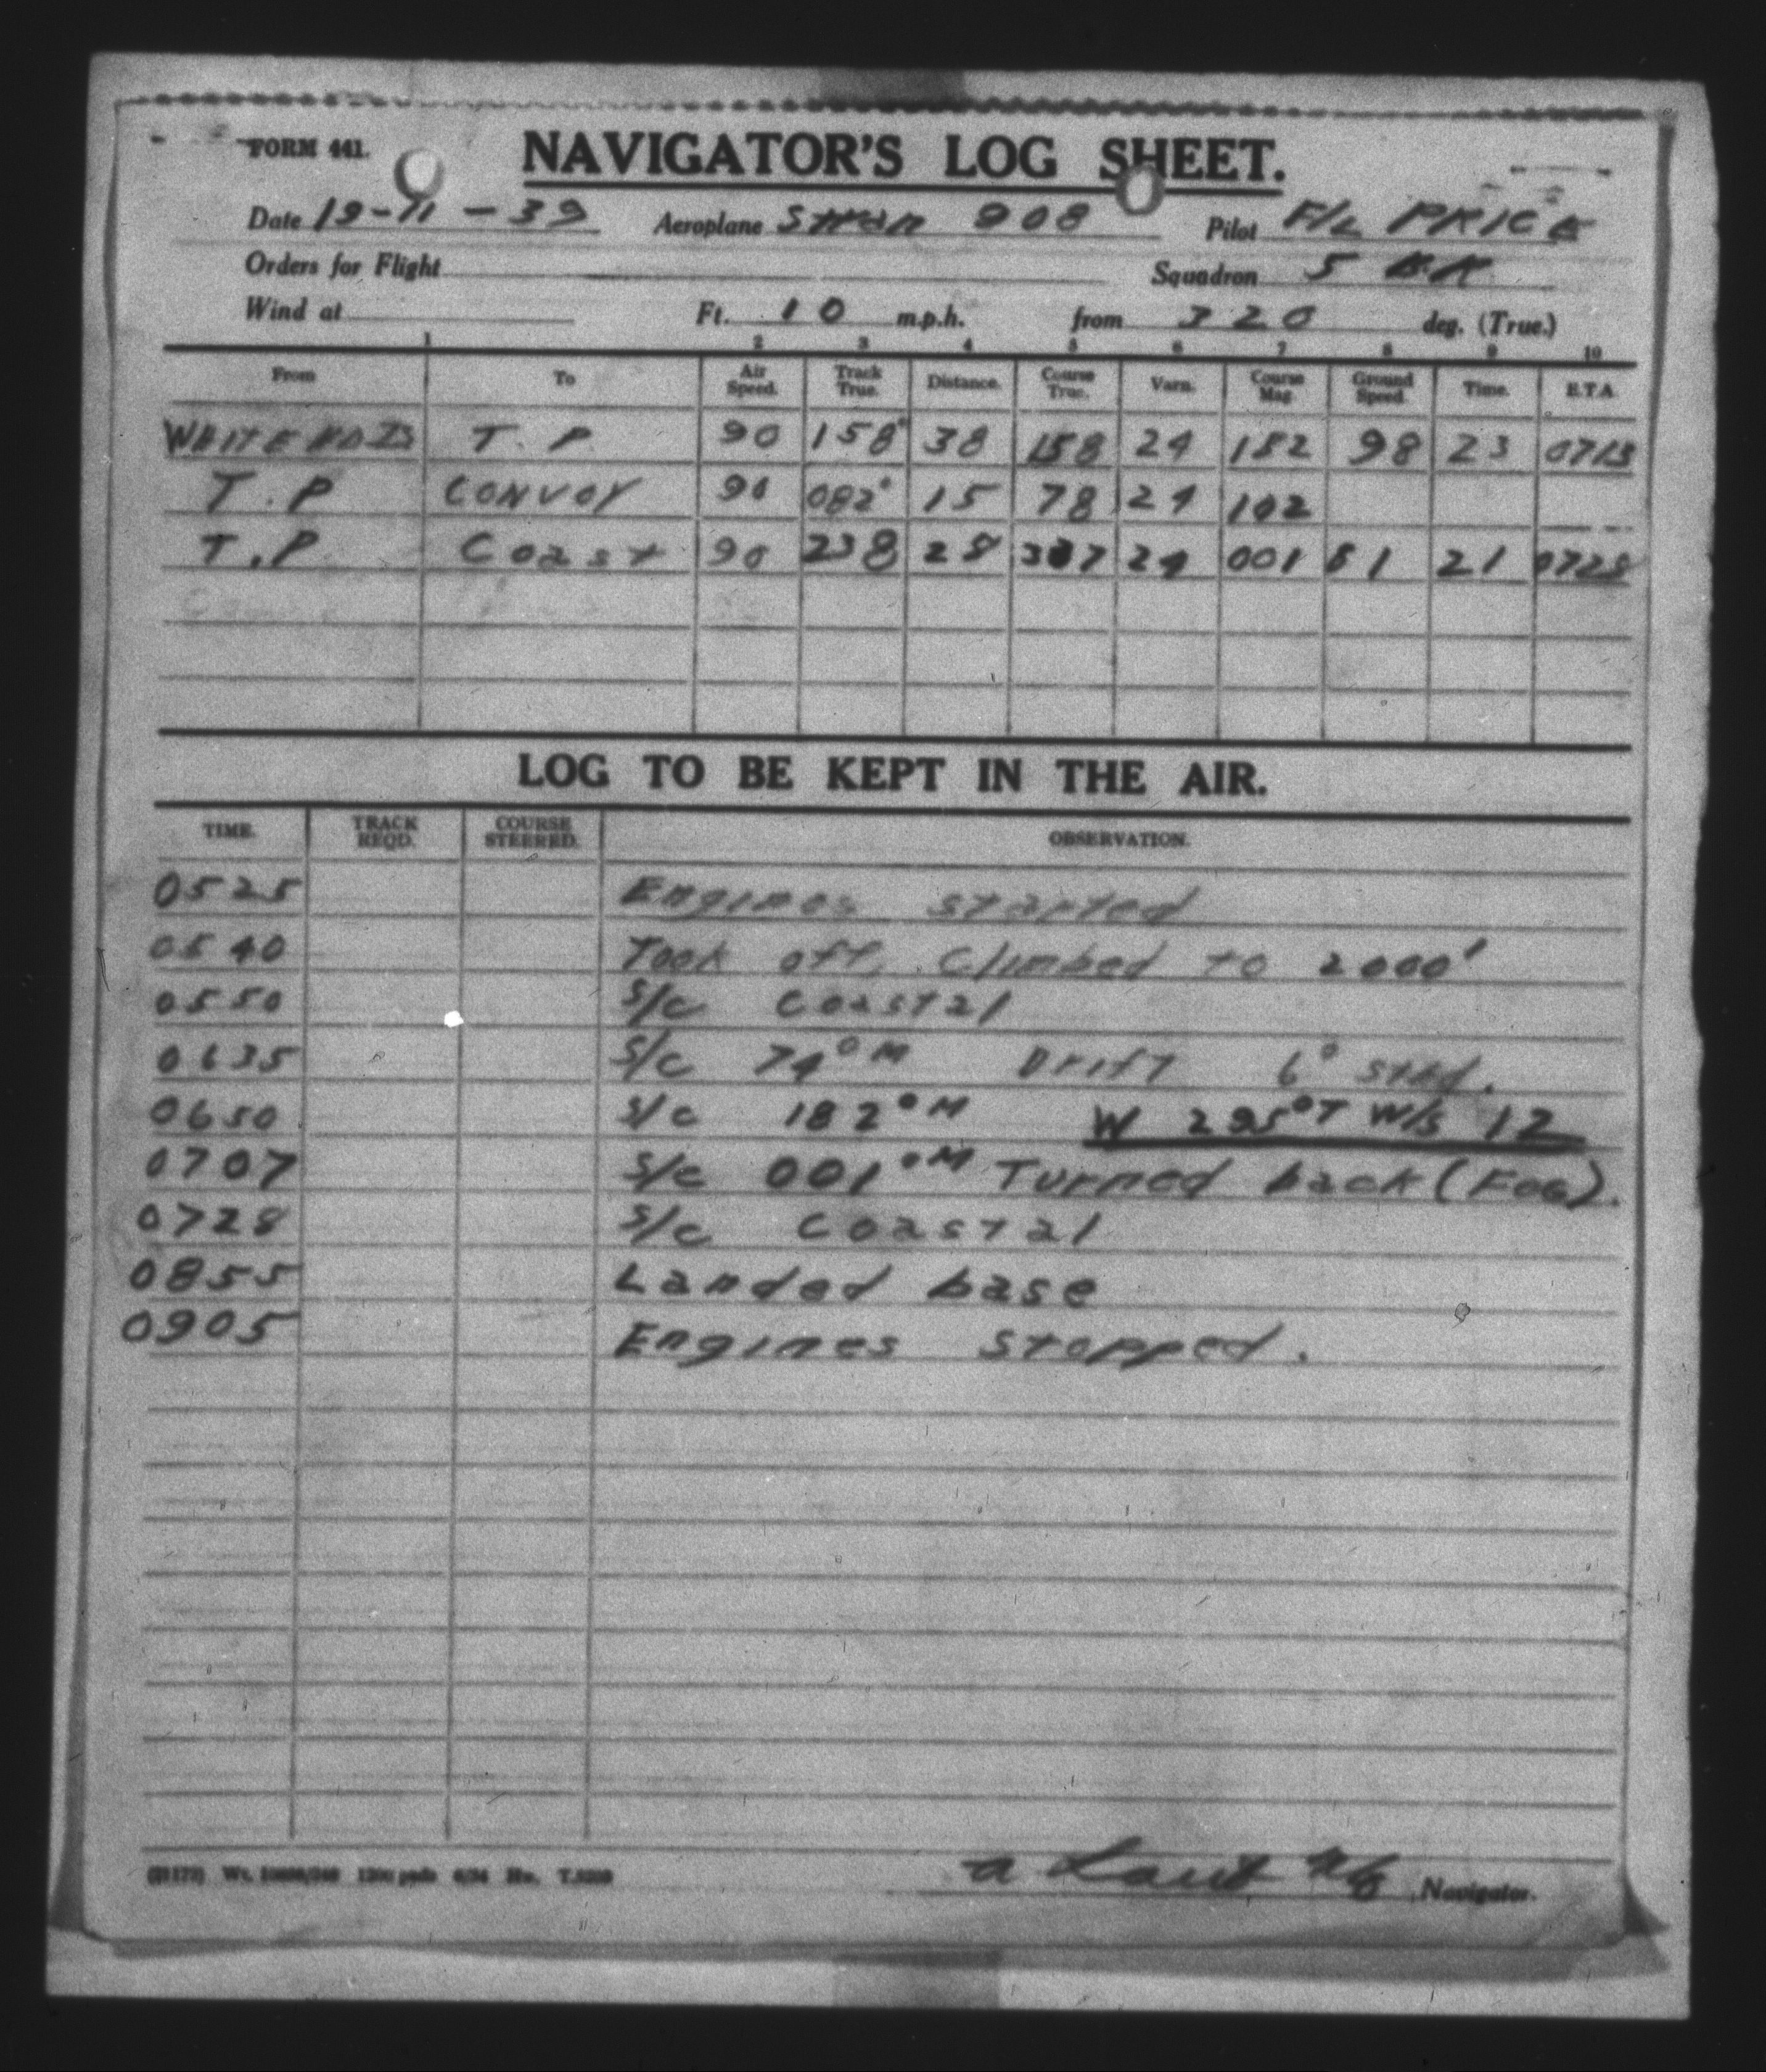 FORM 441.
NAVIGATOR'S LOG SHEET.
Date 19-11-39 Aeroplane Stran 908 Pilot F/L PRICE
Orders for Flight Squadron 5 B.R
Wind at Ft. 10 m.p.h. from 320 deg. (True.)
1 2 3 4 5 6 7 8 9 10
From To Air Speed. Track True. Distance. Course True. Varn. Course Mag. Ground Speed. Time. E.T.A.
WHITE HDIS T. P. 90 158° 38 158 24 182 98 23 0713
T. P CONVOY 90 082° 15 78 24 102
T. P. Coast 90 238 28 337 24 001 81 21 0728
LOG TO BE KEPT IN THE AIR.
TIME. TRACK REQD. COURSE STEERED. OBSERVATION.
0525 Engines started
0540 Took off, Climbed to 2000'
0550 S/c Coastal
0635 S/c 74°M Drift 6° stbd.
0650 S/c 182°M W 295°T W/S 12
0707 S/c 001°M Turned back (FOG).
0728 S/c Coastal
0855 Landed base
0905 Engines Stopped.
Navigator.